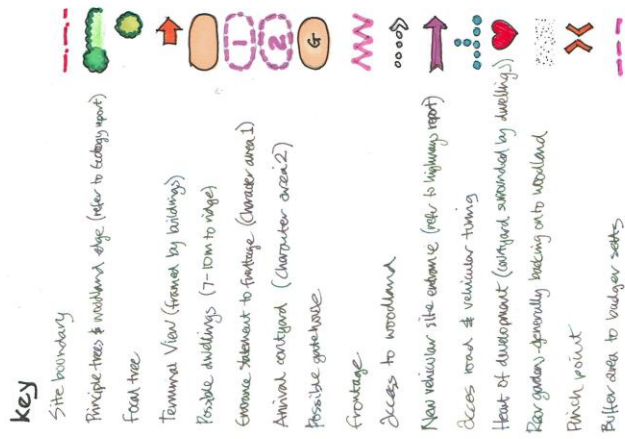 key
Site boundary
Principle trees & woodland edge (refer to Ecology report)
focal tree
Terminal View (framed by buildings)
Possible dwellings (7-10m to ridge)
Entrance statement to frontage (Character area 1)
Arrival courtyard (Character area 2)
Possible gatehouse
frontage
Access to woodland
New vehicular site entrance (refer to highways report)
Access road & vehicular turning
Heart of development (courtyard surrounded by dwellings)
Rear garden - generally backing onto woodland
Pinch point
Buffer area to badger setts
1
2
G